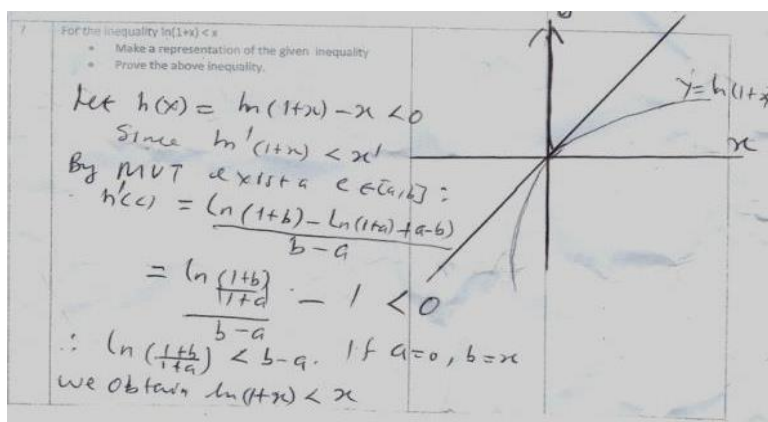 7
For the inequality ln(1+x) < x
• Make a representation of the given inequality
• Prove the above inequality.
Let h(x) = ln(1+x) - x < 0
Since ln'(1+x) < x'
By MVT exist a c ∈ [a,b] :
h'(c) = (ln(1+b) - ln(1+a) + a-b) / (b-a)
= ln((1+b)/(1+a)) / (b-a) - 1 < 0
∴ ln((1+b)/(1+a)) < b-a. If a=0, b=x
we obtain ln(1+x) < x
y = ln(1+x
x